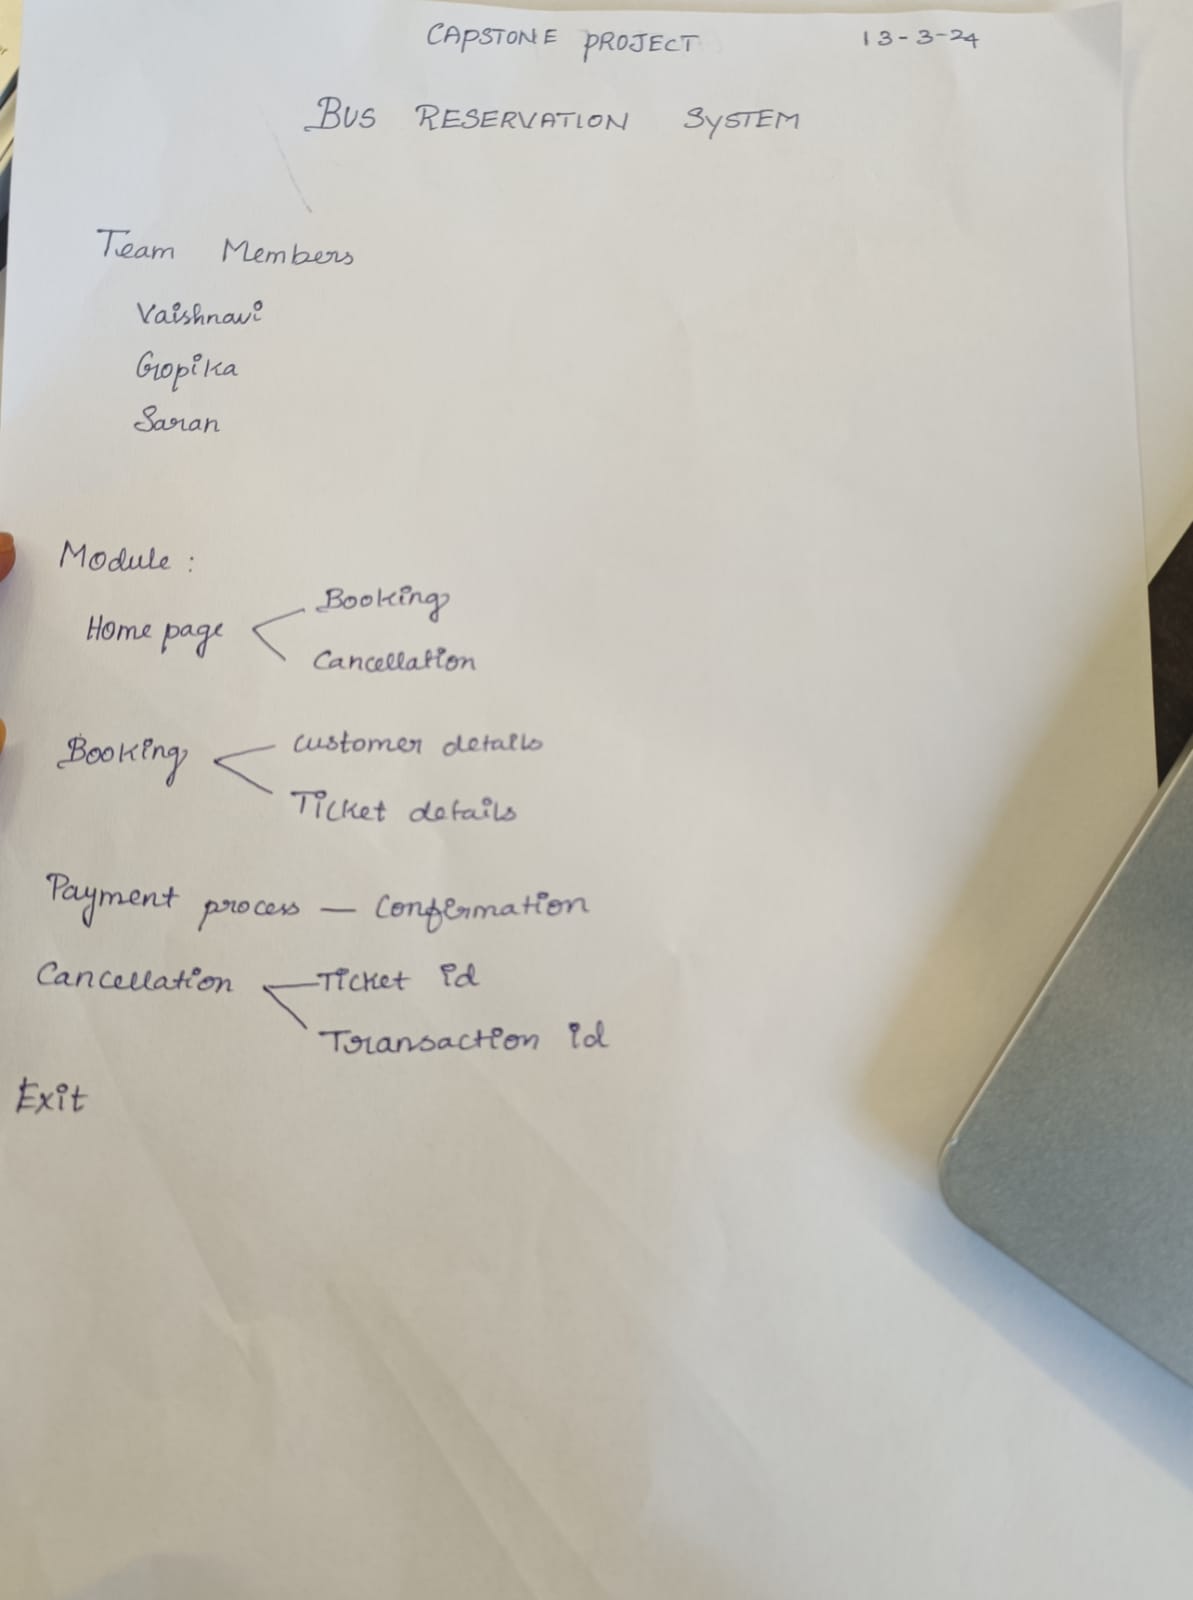 CAPSTONE PROJECT 13-3-24
BUS RESERVATION SYSTEM
Team Members
Vaishnavi
Gopika
Saran
Module :
Booking
Home page
Cancellation
Booking customer details
Ticket details
Payment process — Confirmation
Cancellation Ticket id
Transaction id
Exit